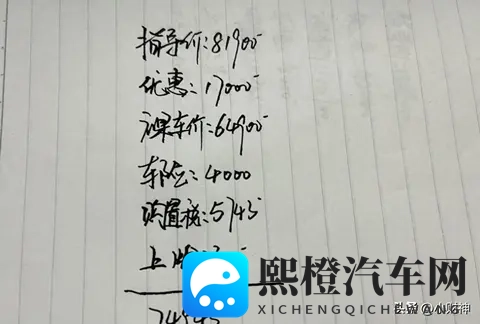 指导价:81900
优惠:17000
裸车价:64900
车险:4000
购置税:5743
上
熙橙汽车网
XICHENGQICHEWANG
头条 @小财神